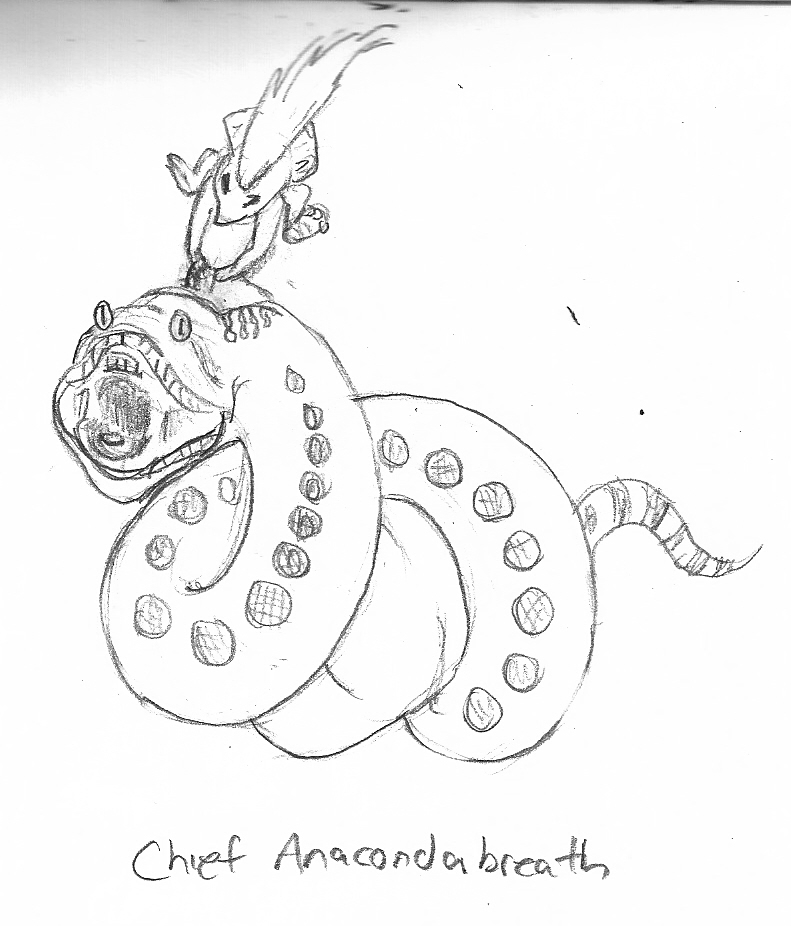 Chief Anacondabreath